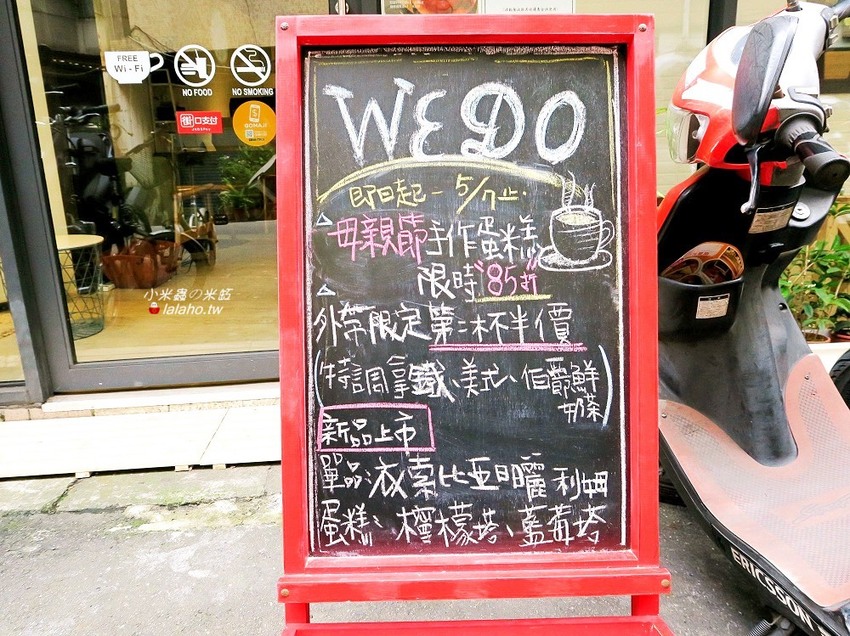 FREE
Wi-Fi
NO FOOD
NO SMOKING
街口支付
JKOPAY
GOMAJI
小米蟲の米缸
lalaho.tw
WEDO
即日起-5/7止.
母親節手作蛋糕
限時"85折"
外帶限定第二杯半價
(特調拿鐵、美式、伯爵鮮奶茶)
新品上市
單品:衣索比亞日曬 利姆
蛋糕:檸檬塔、藍莓塔
ERICSSON